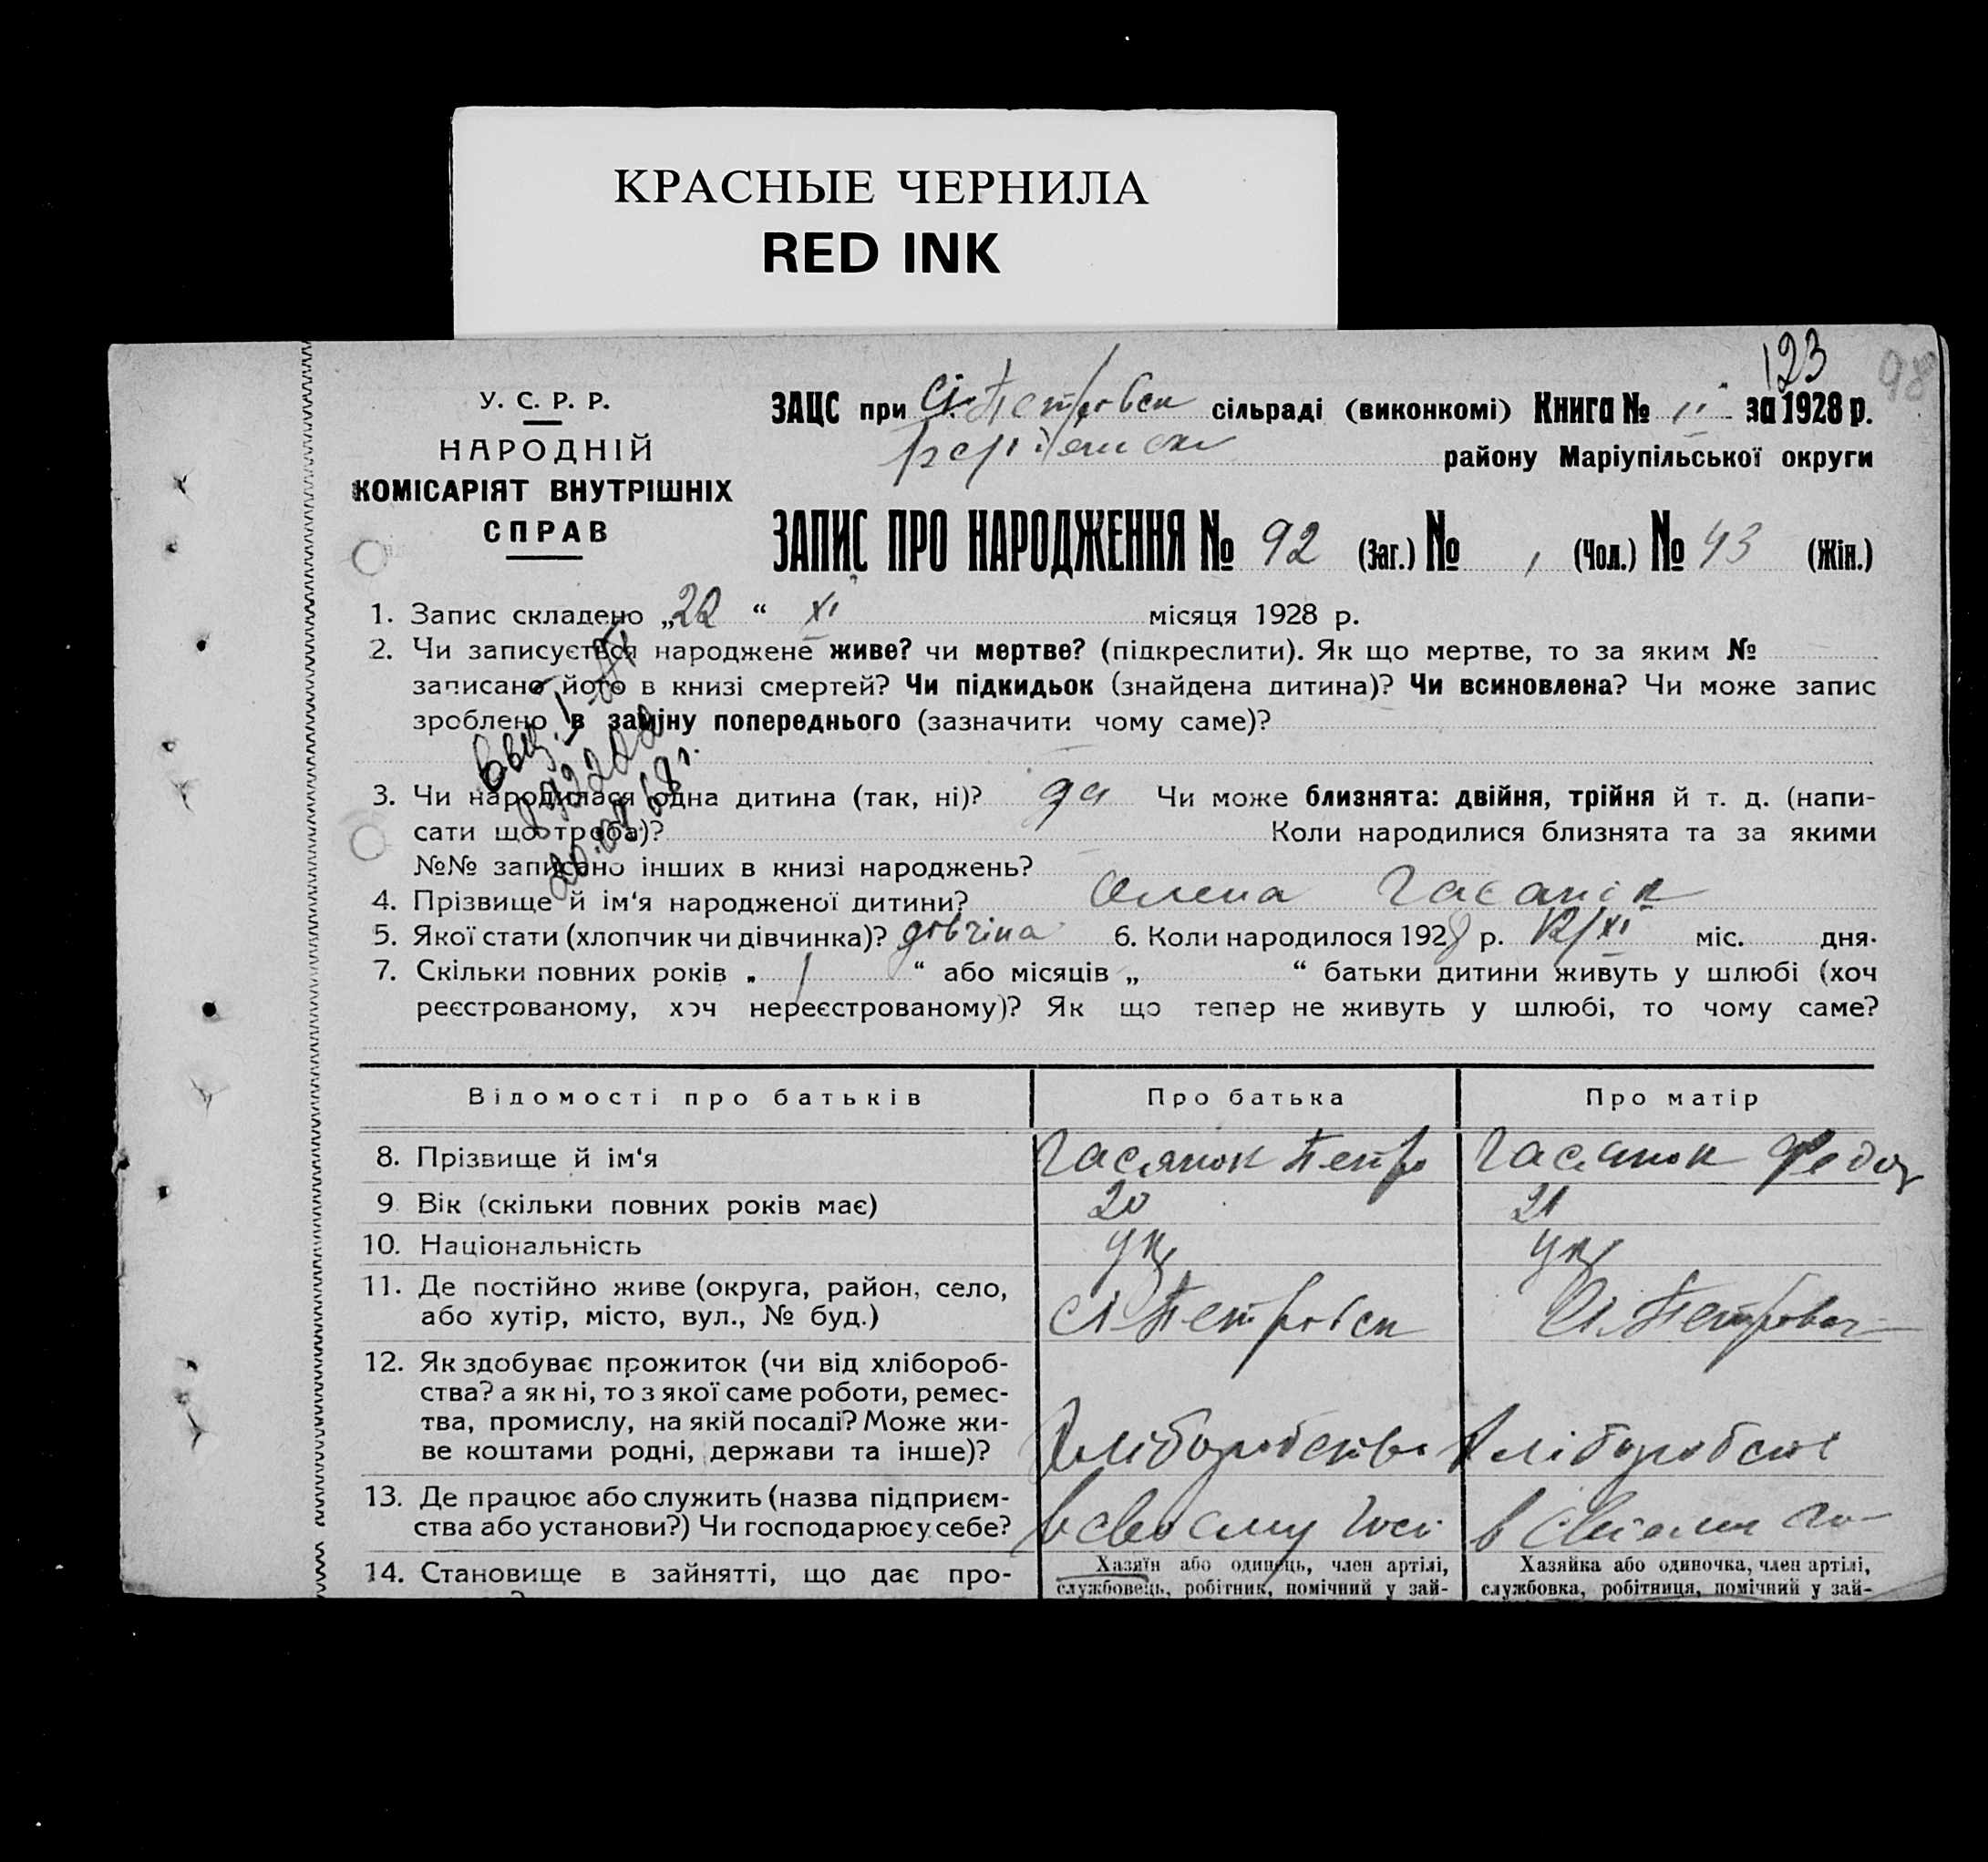 КРАСНЫЕ ЧЕРНИЛА
RED INK
123
98
У. С. Р. Р.
НАРОДНІЙ
КОМІСАРІЯТ ВНУТРІШНІХ
СПРАВ
ЗАЦС при Ст. Петровск сільраді (виконкомі) Книга № II за 1928 р.
району Маріупільської округи
ЗАПИС ПРО НАРОДЖЕННЯ № 92 (Заг.) № (Чол.) № 43 (Жін.)
1. Запис складено „22 “ XI місяця 1928 р.
2. Чи записується народжене живе? чи мертве? (підкреслити). Як що мертве, то за яким №
записано його в книзі смертей? Чи підкидьок (знайдена дитина)? Чи всиновлена? Чи може запис
зроблено в заміну попереднього (зазначити чому саме)?
3. Чи народилася одна дитина (так, ні)? да Чи може близнята: двійня, трійня й т. д. (напи-
сати що треба)? Коли народилися близнята та за якими
№№ записано інших в книзі народжень?
4. Прізвище й ім‘я народженої дитини? Олена
5. Якої статі (хлопчик чи дівчинка)? дівчина 6. Коли народилось 1928 р. 12/XI міс. дня.
7. Скільки повних років „ 1 “ або місяців „ “ батьки дитини живуть у шлюбі (хоч
реєстрованому, хоч нереєстрованому)? Як що тепер не живуть у шлюбі, то чому саме?
Відомості про батьків Про батька Про матір
8. Прізвище й ім‘я Гасанюк Петро Гасанюк
9. Вік (скільки повних років має) 20 21
10. Національність Укр Укр
11. Де постійно живе (округа, район, село,
або хутір, місто, вул., № буд.) Ст. Петровск Ст. Петровск
12. Як здобуває прожиток (чи від хлібороб-
ства? а як ні, то з якої саме роботи, ремес-
тва, промислу, на якій посаді? Може жи-
ве коштами родні, держави та інше)? Хліборобство Хліборобство
13. Де працює або служить (назва підприєм-
ства або установи?) Чи господарює у себе? в своєму госп
14. Становище в зайнятті, що дає про- Хазяїн або одинець, член артілі, Хазяйка або одиночка, член артілі,
службовець, робітник, помічний у зай- службовка, робітниця, помічний у зай-